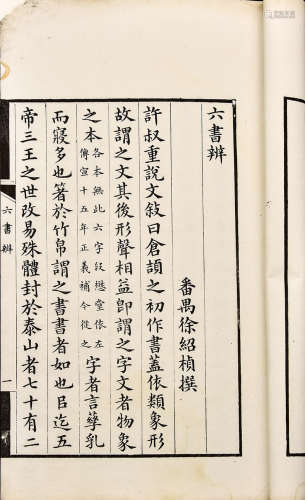 六書辨
番禺徐紹楨撰
許叔重說文敘曰倉頡之初作書蓋依類象形
故謂之文其後形聲相益即謂之字文者物象
之本各本無此六字段懋堂依左傳宣十五年正義補今從之字者言孳乳
而寖多也箸於竹帛謂之書書者如也㠯迄五
帝三王之世改易殊體封於泰山者七十有二
六書辨
一